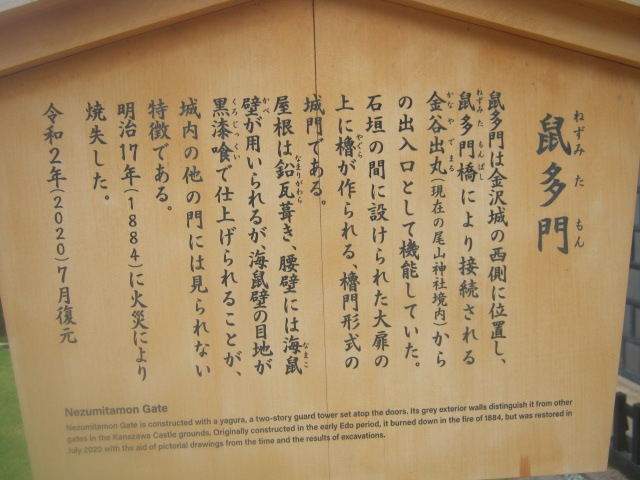 鼠多門
ねずみ た もん
鼠多門は金沢城の西側に位置し、
鼠多門橋により接続される
ねずみた もんばし
金谷出丸(現在の尾山神社境内)から
かな や で まる
の出入口として機能していた。
石垣の間に設けられた大扉の
上に櫓が作られる、櫓門形式の
やぐら
城門である。
屋根は鉛瓦葺き、腰壁には海鼠
なまりがわら なまこ
壁が用いられるが、海鼠壁の目地が
かべ
黒漆喰で仕上げられることが、
くろじっくい
城内の他の門には見られない
特徴である。
明治17年(1884)に火災により
焼失した。
令和2年(2020)7月復元
Nezumitamon Gate
Nezumitamon Gate is constructed with a yagura, a two-story guard tower set atop the doors. Its grey exterior walls distinguish it from other
gates in the Kanazawa Castle grounds. Originally constructed in the early Edo period, it burned down in the fire of 1884, but was restored in
July 2020 with the aid of pictorial drawings from the time and the results of excavations.